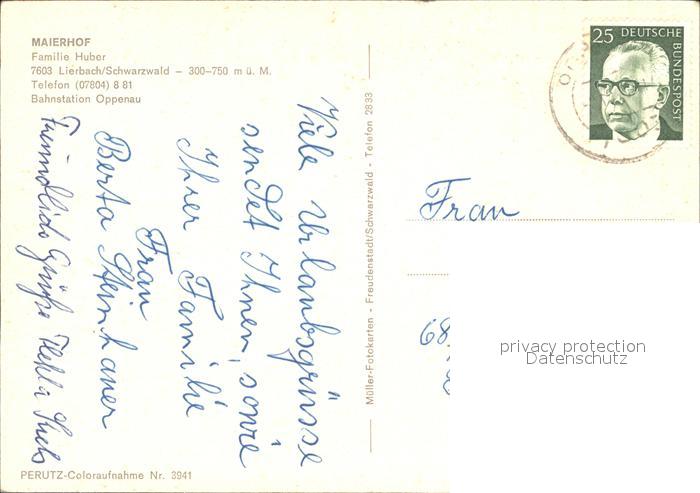 MAIERHOF
Familie Huber
7603 Lierbach/Schwarzwald – 300–750 m ü. M.
Telefon (07804) 8 81
Bahnstation Oppenau
Viele Urlaubsgrüsse
sendet Ihnen, sowie
Ihrer Familie
Frau
Berta Steinhauer
Freundliche Grüße
PERUTZ-Coloraufnahme Nr. 3941
Müller-Fotokarten - Freudenstadt/Schwarzwald - Telefon 2833
25 DEUTSCHE
BUNDESPOST
Frau
68
privacy protection
Datenschutz